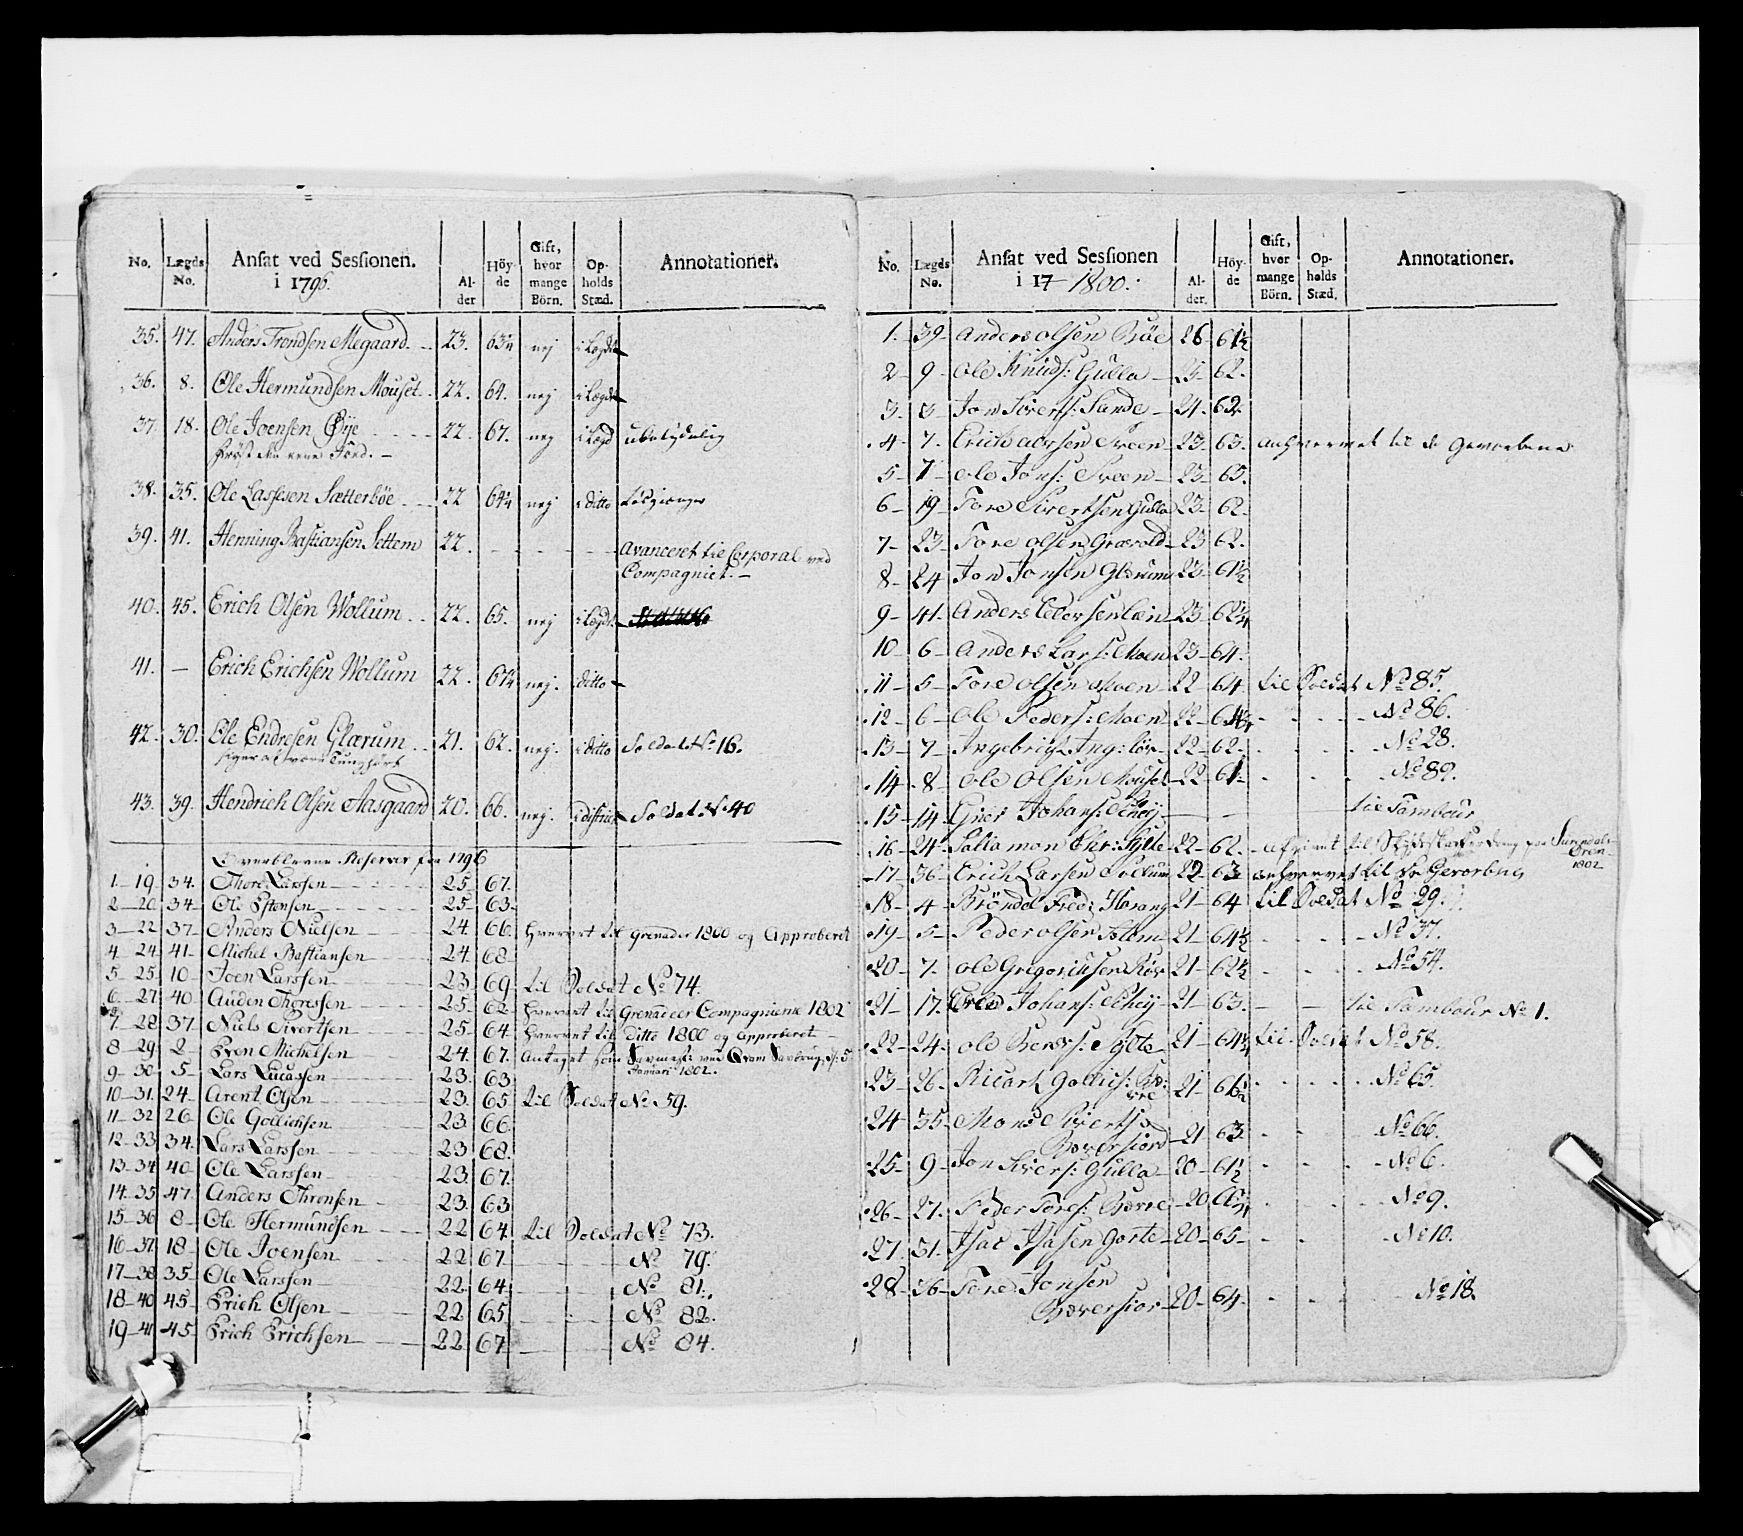 No. Lægds No. Ansat ved Sessionen. i 1796. Alder Höyde Gift, hvor mange Börn. Opholds Stæd. Annotationer.
35. 47. Anders Trondsen Megaard. 23. 63 nej i Lægdet
36. 8. Ole Hermundsen Mouset. 22. 64. nej i Lægdet
37 18. Ole Joensen Øye 22. 67. nej i Lægd ubetydelig
38. 35. Ole Lassesen Sætterböe 22 64¼ nej i ditto Løsgienger
39. 41. Henning Bastiansen Settem 22. Avanceret til Corporal ved
Compagniet.
40. 45. Erich Olsen Wollum 22. 65. nej i Lægdet
41. — Erich Erichsen Wollum 22. 67¼ nej. i ditto
42. 30. Ole Endresen Glærum 21. 62. nej. i ditto Soldat No 16.
43. 39. Hendrich Olsen Aasgaard 20. 66. nej. i district Soldat No 40
Overblevne Reserver fra 1796
1 19. 34. Thore Larssen 25 67.
2 20 34 Ole Estensen 25 63
3 22 37. Anders Nielsen 24. 66. Hvervet til Grenader 1800 og Approberet
4 24 41 Michel Bastiansen 24. 68
5 25 10 Joen Larssen 23. 69 til Soldat No 74.
6 27 40 Auden Thoressen 25. 62 Hvervet til Grenadeer Compagnierne 1802
7 28 37. Niels Sivertsen 25 64. Hvervet til ditto 1800 og Approberet
8 29 2 Even Michelsen 24. 67. Antaget som ved d: 5
Januari 1802.
9 30 5 Lars Lucassen 23. 63
10 31. 24 Arent Olsen 23. 65 til Soldat No 59.
11 32 26 Ole Gollichsen 23 66.
12 33 34. Lars Larssen 23 68.
13 34 40 Ole Larssen 23. 67.
14 35 47 Anders Thronsen 23. 63
15 36 8 Ole Hermundsen 22 64. til Soldat No 73.
16 37 18 Ole Joensen 22 67. No 79.
17 38 35 Ole Larssen 22. 64. No 81.
18 40 45 Erich Olsen 22 65. No 82.
19 41 45 Erich Erichsen 22 67 No 84.
No. Lægds No. Ansat ved Sessionen i 17 1800. Alder. Höyde Gift, hvor mange Börn. Opholds Stæd. Annotationer.
1. 39 Anders Olsen Böe 26 61½
2 9 Ole Knuds: Gulla 25 62.
3 3 Jon Siverts: Sande 24. 62.
4 7. Erich Sveen 23 63. anhvervet til de Gevorbene
5 7 Ole Jons: Sveen 23 65.
6 19 Tore Sivertsen Gulla 23 62
7 23 Tore Olsen 23 62.
8 24 Jon Jonsen Glærum 23 61½
9 41. Anders Pedersen 23 62¼
10 6 Anders Lars: Moen 23 64.
11 5 Tore Olsen Moen 22 64 til Soldat No 85.
12 6 Ole Peders: Moen 22 64¼ No 86.
13 7 Ingebrigt Ing: 22 62. No 28.
14 8 Ole Olsen Mouset 22 61 No 89.
15 14 Johans: til Tambour
16 24 Sallamon Chr: Sylte 22 62. til paa Surendals
Øren
1802
17 36 Erich Larsen 22 63 anhvervet til de Gevorbne
18 4 Brönde Fred: 21 64 til Soldat No 29.
19 5 Peder Olsen 21 64½ No 37.
20 7. Ole Gregoriusen 21 62½ No 54.
21 17. Johans: 21 63. til Tambour No 1.
22 24. Ole Sylte 21 64¼ til Soldat No 58.
23 26. Ricart Gollics: 21 61½ No 65.
24 35. Mons Siverts: Boversiord 21 63. No 66.
25 9 Jon Sivers: Gulla 20 61½ No 6.
26 27. Peder Tores: 20 No 9.
27 31. Isac Isacsen 20 65 No 10.
28 36 Tore Jonsen 20 64. No 18.